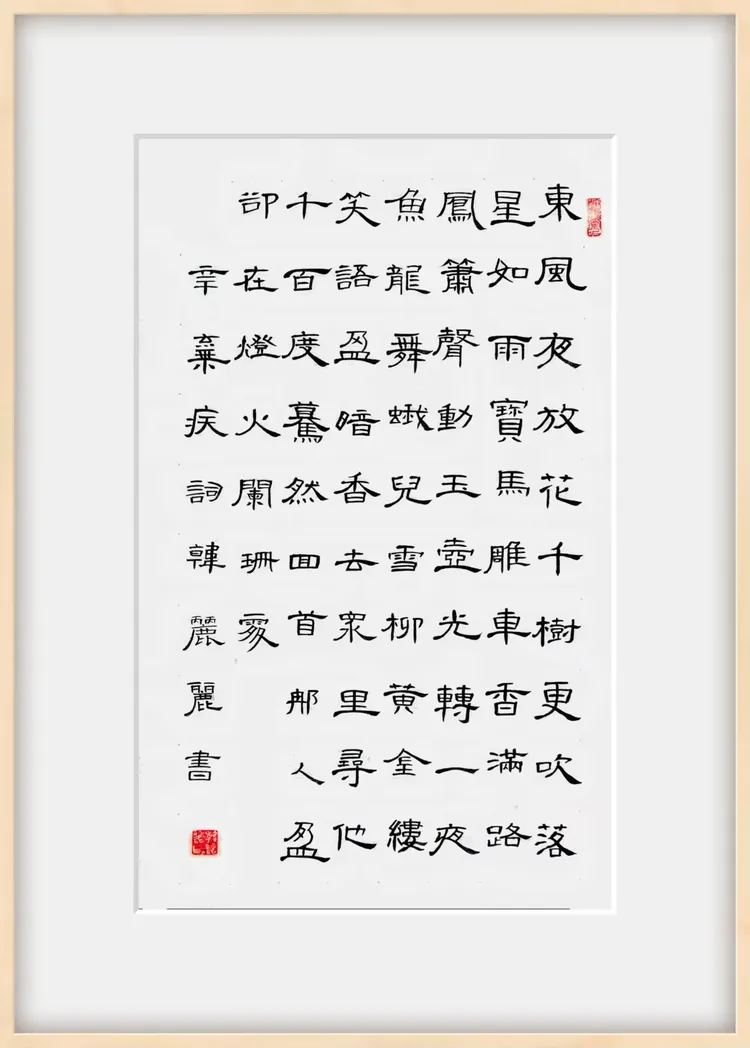 東風夜放花千樹更吹落
星如雨寶馬雕車香滿路
鳳簫聲動玉壺光轉一夜
魚龍舞蛾兒雪柳黃全縷
笑語盈暗香去眾里尋他
千百度驀然回首那人盈
卻在燈火闌珊處
辛棄疾詞韓麗麗書